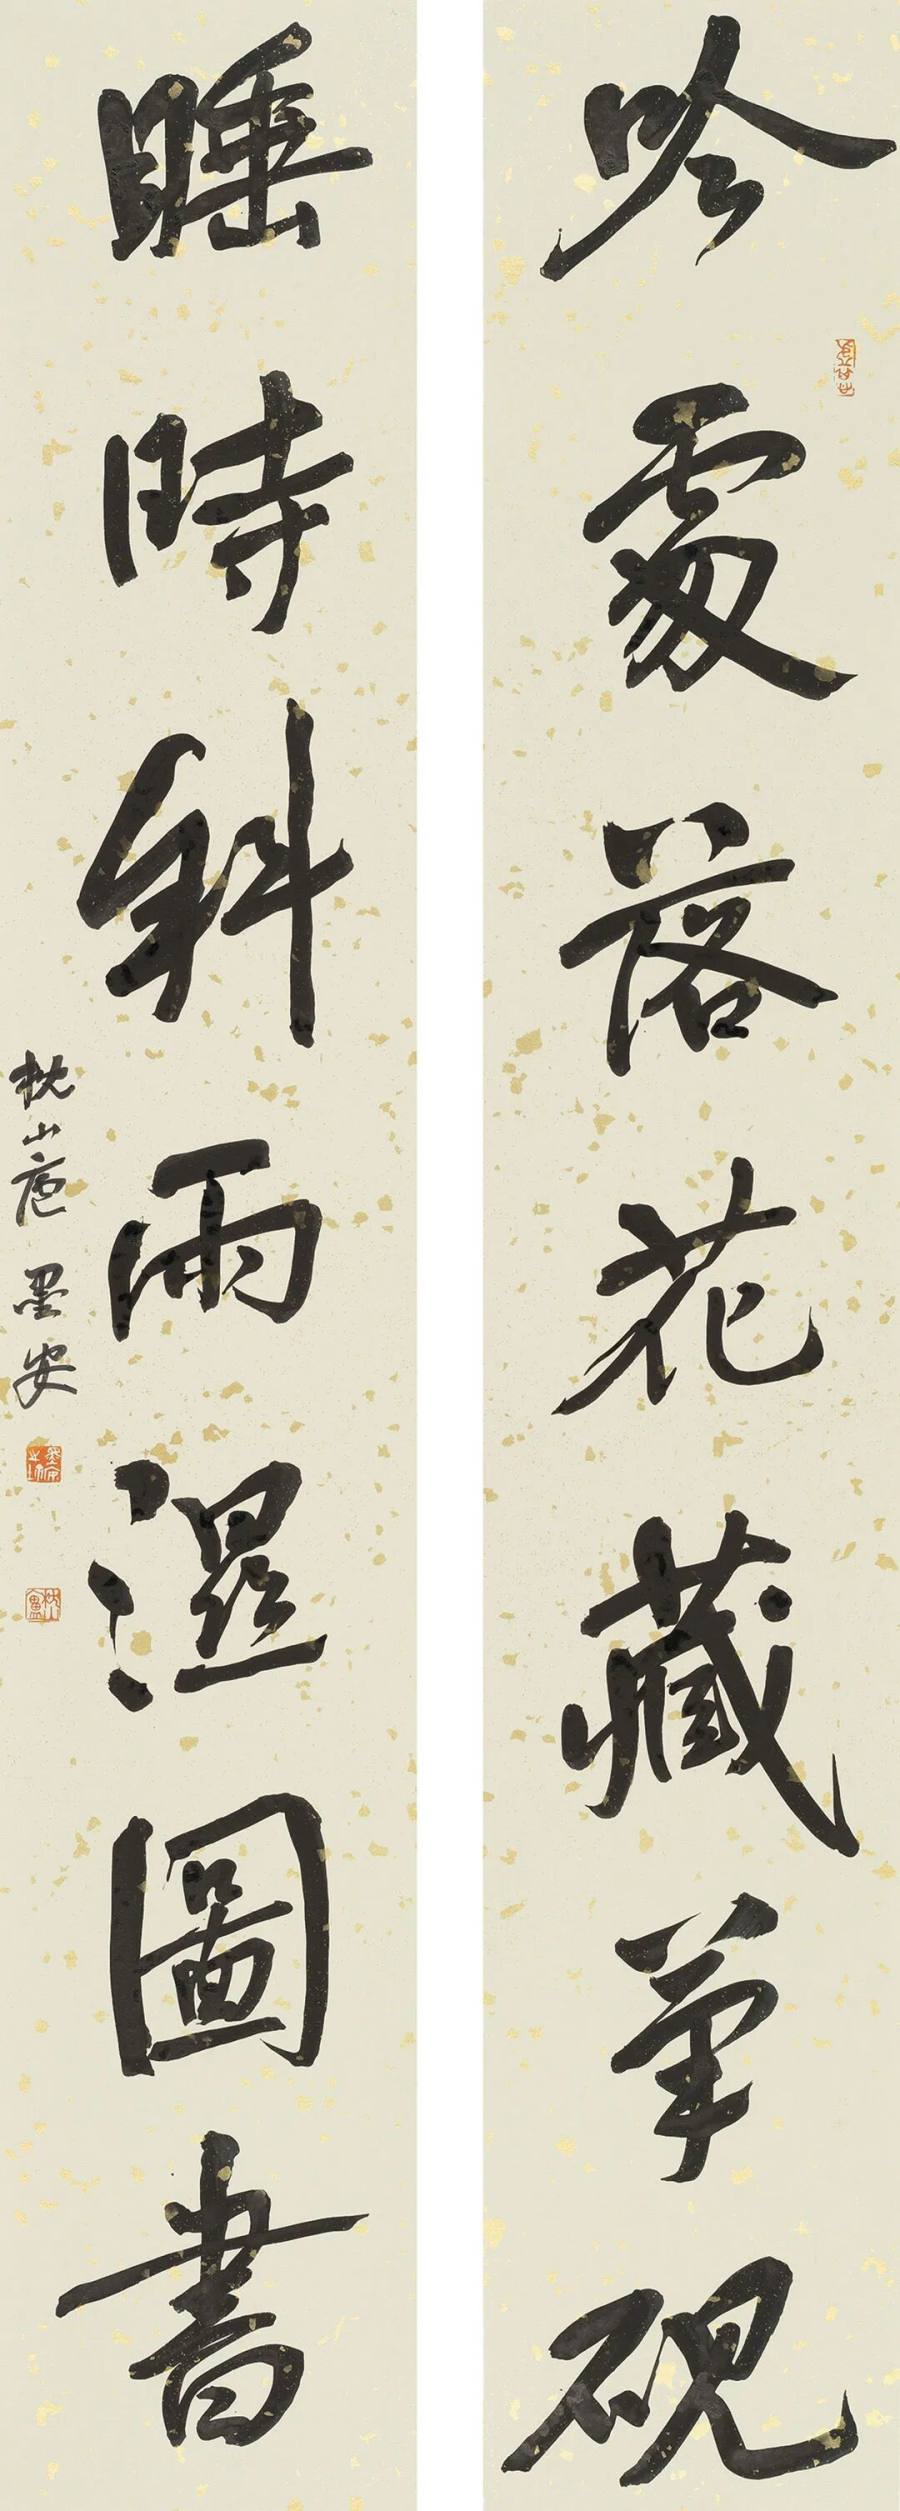 吟處落花藏筆硯
睡時斜雨濕圖書
枕山廬 墨安